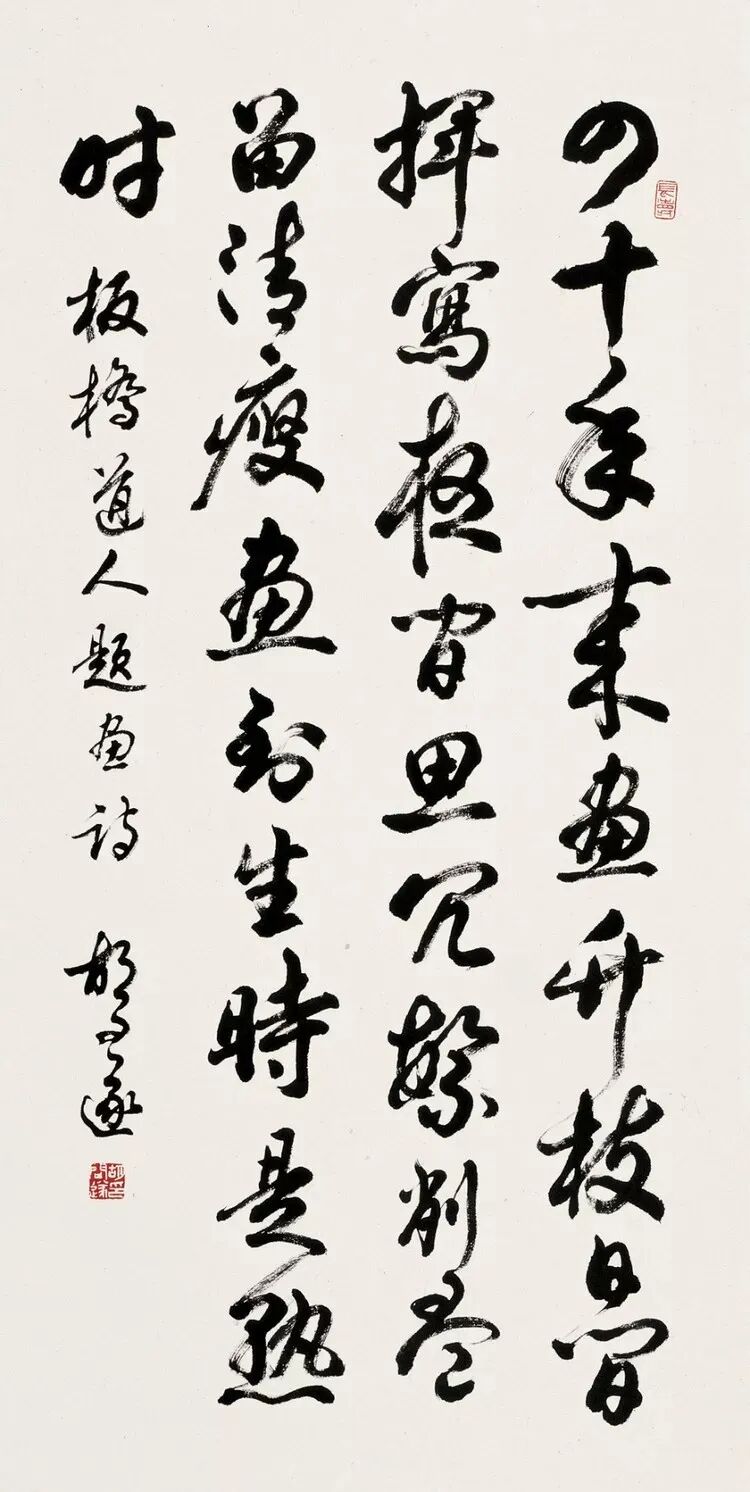 四十年来画竹枝日间
揮寫夜间思冗繁削尽
留清瘦画到生時是熟
时 板橋道人题画诗 胡问遂